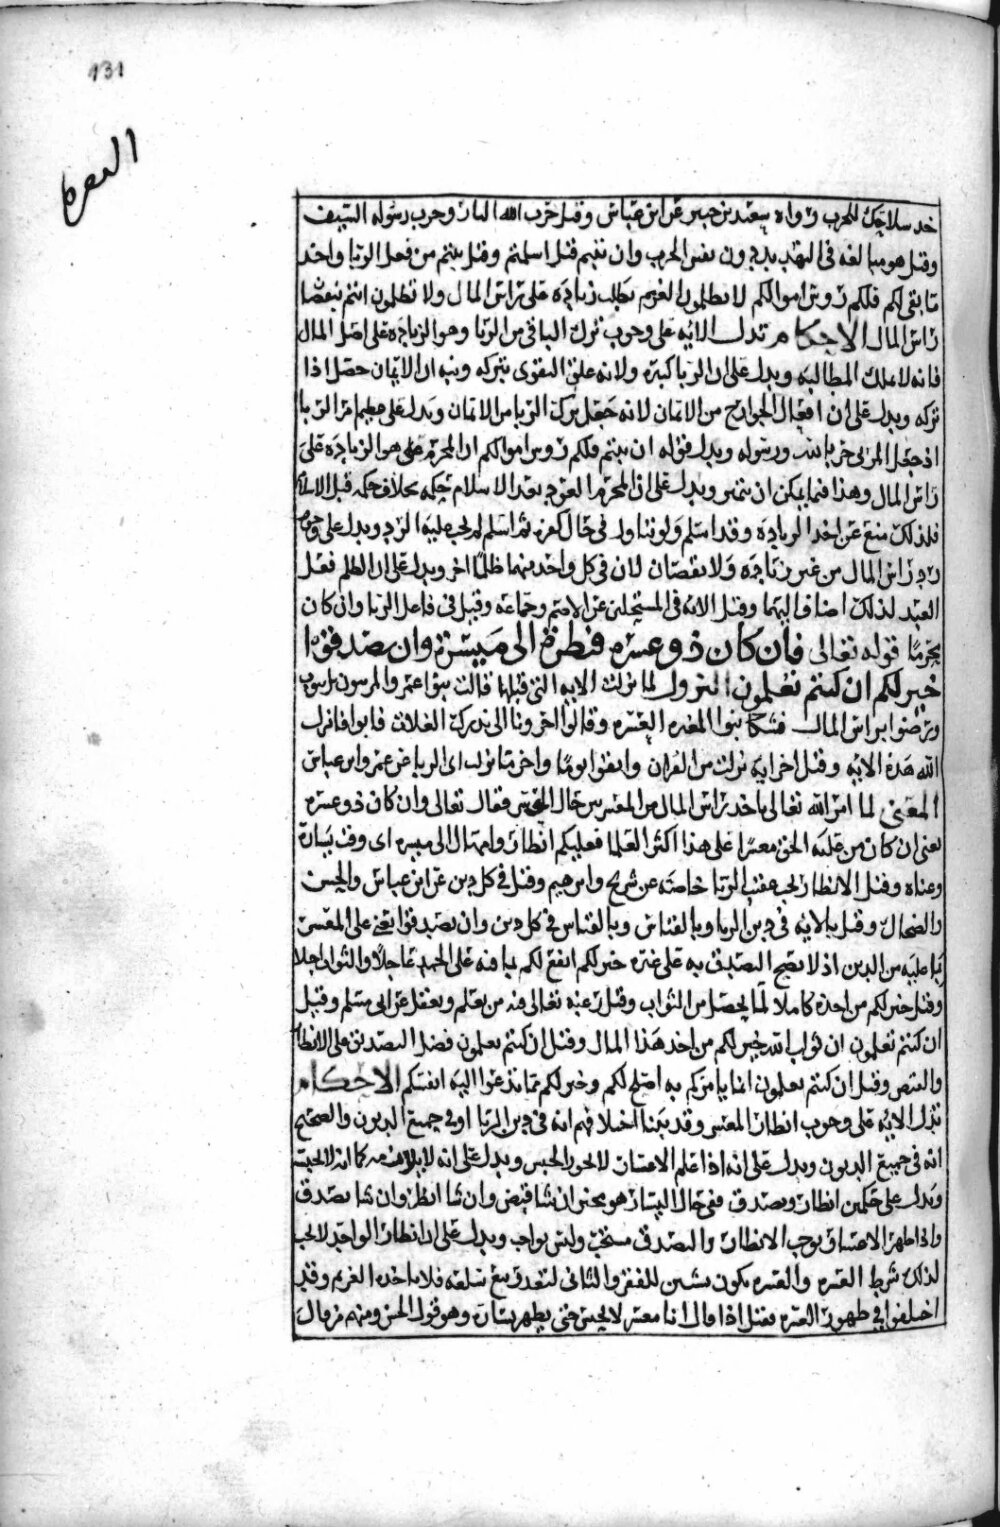 131
البقرة
خذ سلاحك للحرب رواه سعيد بن جبير عن ابن عباس وقيل حرب الله النار وحرب رسوله السيف
وقيل هو مبالغة في التهديد دون نفس الحرب وان تبتم قيل اسلمتم وقيل تبتم من فعل الربا واخذ
ما بقى لكم فلكم روس اموالكم لا تظلمون الغريم بطلب زيادة على راس المال ولا تظلمون انتم بنقصان
راس المال الاحكام تدل الاية على وجوب ترك الباقي من الربا وهو الزيادة على اصل المال
فانه لا يملك المطالبة ويدل على ان الربا كبيرة ولانه علق التقوى بتركه ونبه ان الايمان حصل اذا
تركه ويدل على ان افعال الجوارح من الايمان لانه جعل ترك الربا من الايمان ويدل على عظيم امر الربا
اذ جعل المربي حربا لله ورسوله ويدل قوله ان تبتم فلكم روس اموالكم ان المحرم هو الزيادة على
راس المال وهذا فيما يمكن ان يتميز ويدل على ان المحرم العقود بعد الاسلام حكمه بخلاف حكمه قبل الاسلام
فلذلك منع عن اخذ الزيادة وقد اسلم ولو تناول في حال كفره ثم اسلم لم يجب عليه الرد ويدل على وجوب
رد راس المال من غير زيادة ولا نقصان لان في كل واحد منهما ظلما اخر ويدل على ان الظلم فعل
العبد لذلك اضافه اليهما وقيل الاية في المستحلين عن الاصم وجماعة وقيل في فاعل الربا وان كان
محرما قوله تعالى فان كان ذو عسرة فنظرة الى ميسرة وان تصدقوا
خير لكم ان كنتم تعلمون النزول لما نزلت الاية التي قبلها قالت بنو عمرو المربون
ورضوا براس المال فشكا بنو المغيرة العسرة وقالوا اخرونا الى ان ندرك الغلات فابوا فانزل
الله هذه الاية وقيل اخر اية نزلت من القران واتقوا يوما واخر ما نزلت اى الربا عن عمر وابن عباس
المعنى لما امر الله تعالى باخذ راس المال من المعسر بين حال المعسر فقال تعالى وان كان ذو عسرة
يعني ان كان من عليه الحق معسرا على هذا اكثر العلما فعليكم انظار وامهال الى ميسرة اى وقت يسارة
وغناه وقيل الانظار يجب في الربا خاصة عن شريح وابرهيم وقيل في كل دين عن ابن عباس والحسن
والضحاك وقيل بالاية في دين الربا وبالقياس في كل دين وان تصدقوا يعني على المعسر
بما عليه من الدين اذ لا يصح التصدق به على غيره خير لكم انفع لكم لما فيه على الحمد عاجلا والثواب اجلا
وقيل خير لكم من اخذه كاملا لما يحصل من الثواب وقيل رغبة تعالى فيه من يعلم ويعقل عن ابي مسلم وقيل
ان كنتم تعلمون ان ثواب الله خير لكم من اخذ هذا المال وقيل ان كنتم تعلمون فضل التصدق على الانظار
والقبض وقيل ان كنتم تعلمون انما يامركم به اصلح لكم وخير لكم مما تدعوا اليه انفسكم الاحكام
تدل الاية على وجوب انظار المعسر وقد بينا اختلافهم انه في دين الربا او في جميع الديون والصحيح
انه في جميع الديون ويدل على انه اذا علم الاعسار لا يجوز الحبس ويدل على انه لا يلازمه كما انه لا يحبسه
ويدل على حكمين انظار وتصدق ففي حال اليسار هو مخير ان شا قبض وان شا انظر وان شا تصدق
واذا ظهر الاعسار وجب الانظار والتصدق مستحب وليس بواجب ويدل على ان انظار الواجد لا يجب
لذلك شرط العسرة والعسرة تكون بشيين للفقر والثاني لتعذر بيع سلعة فلا ياخذه الغريم وقد
اختلفوا في ظهور العسرة فقيل اذا قال انا معسر لا يحبس حتى يظهر يساره وهو قول الحسن ومنهم من قال